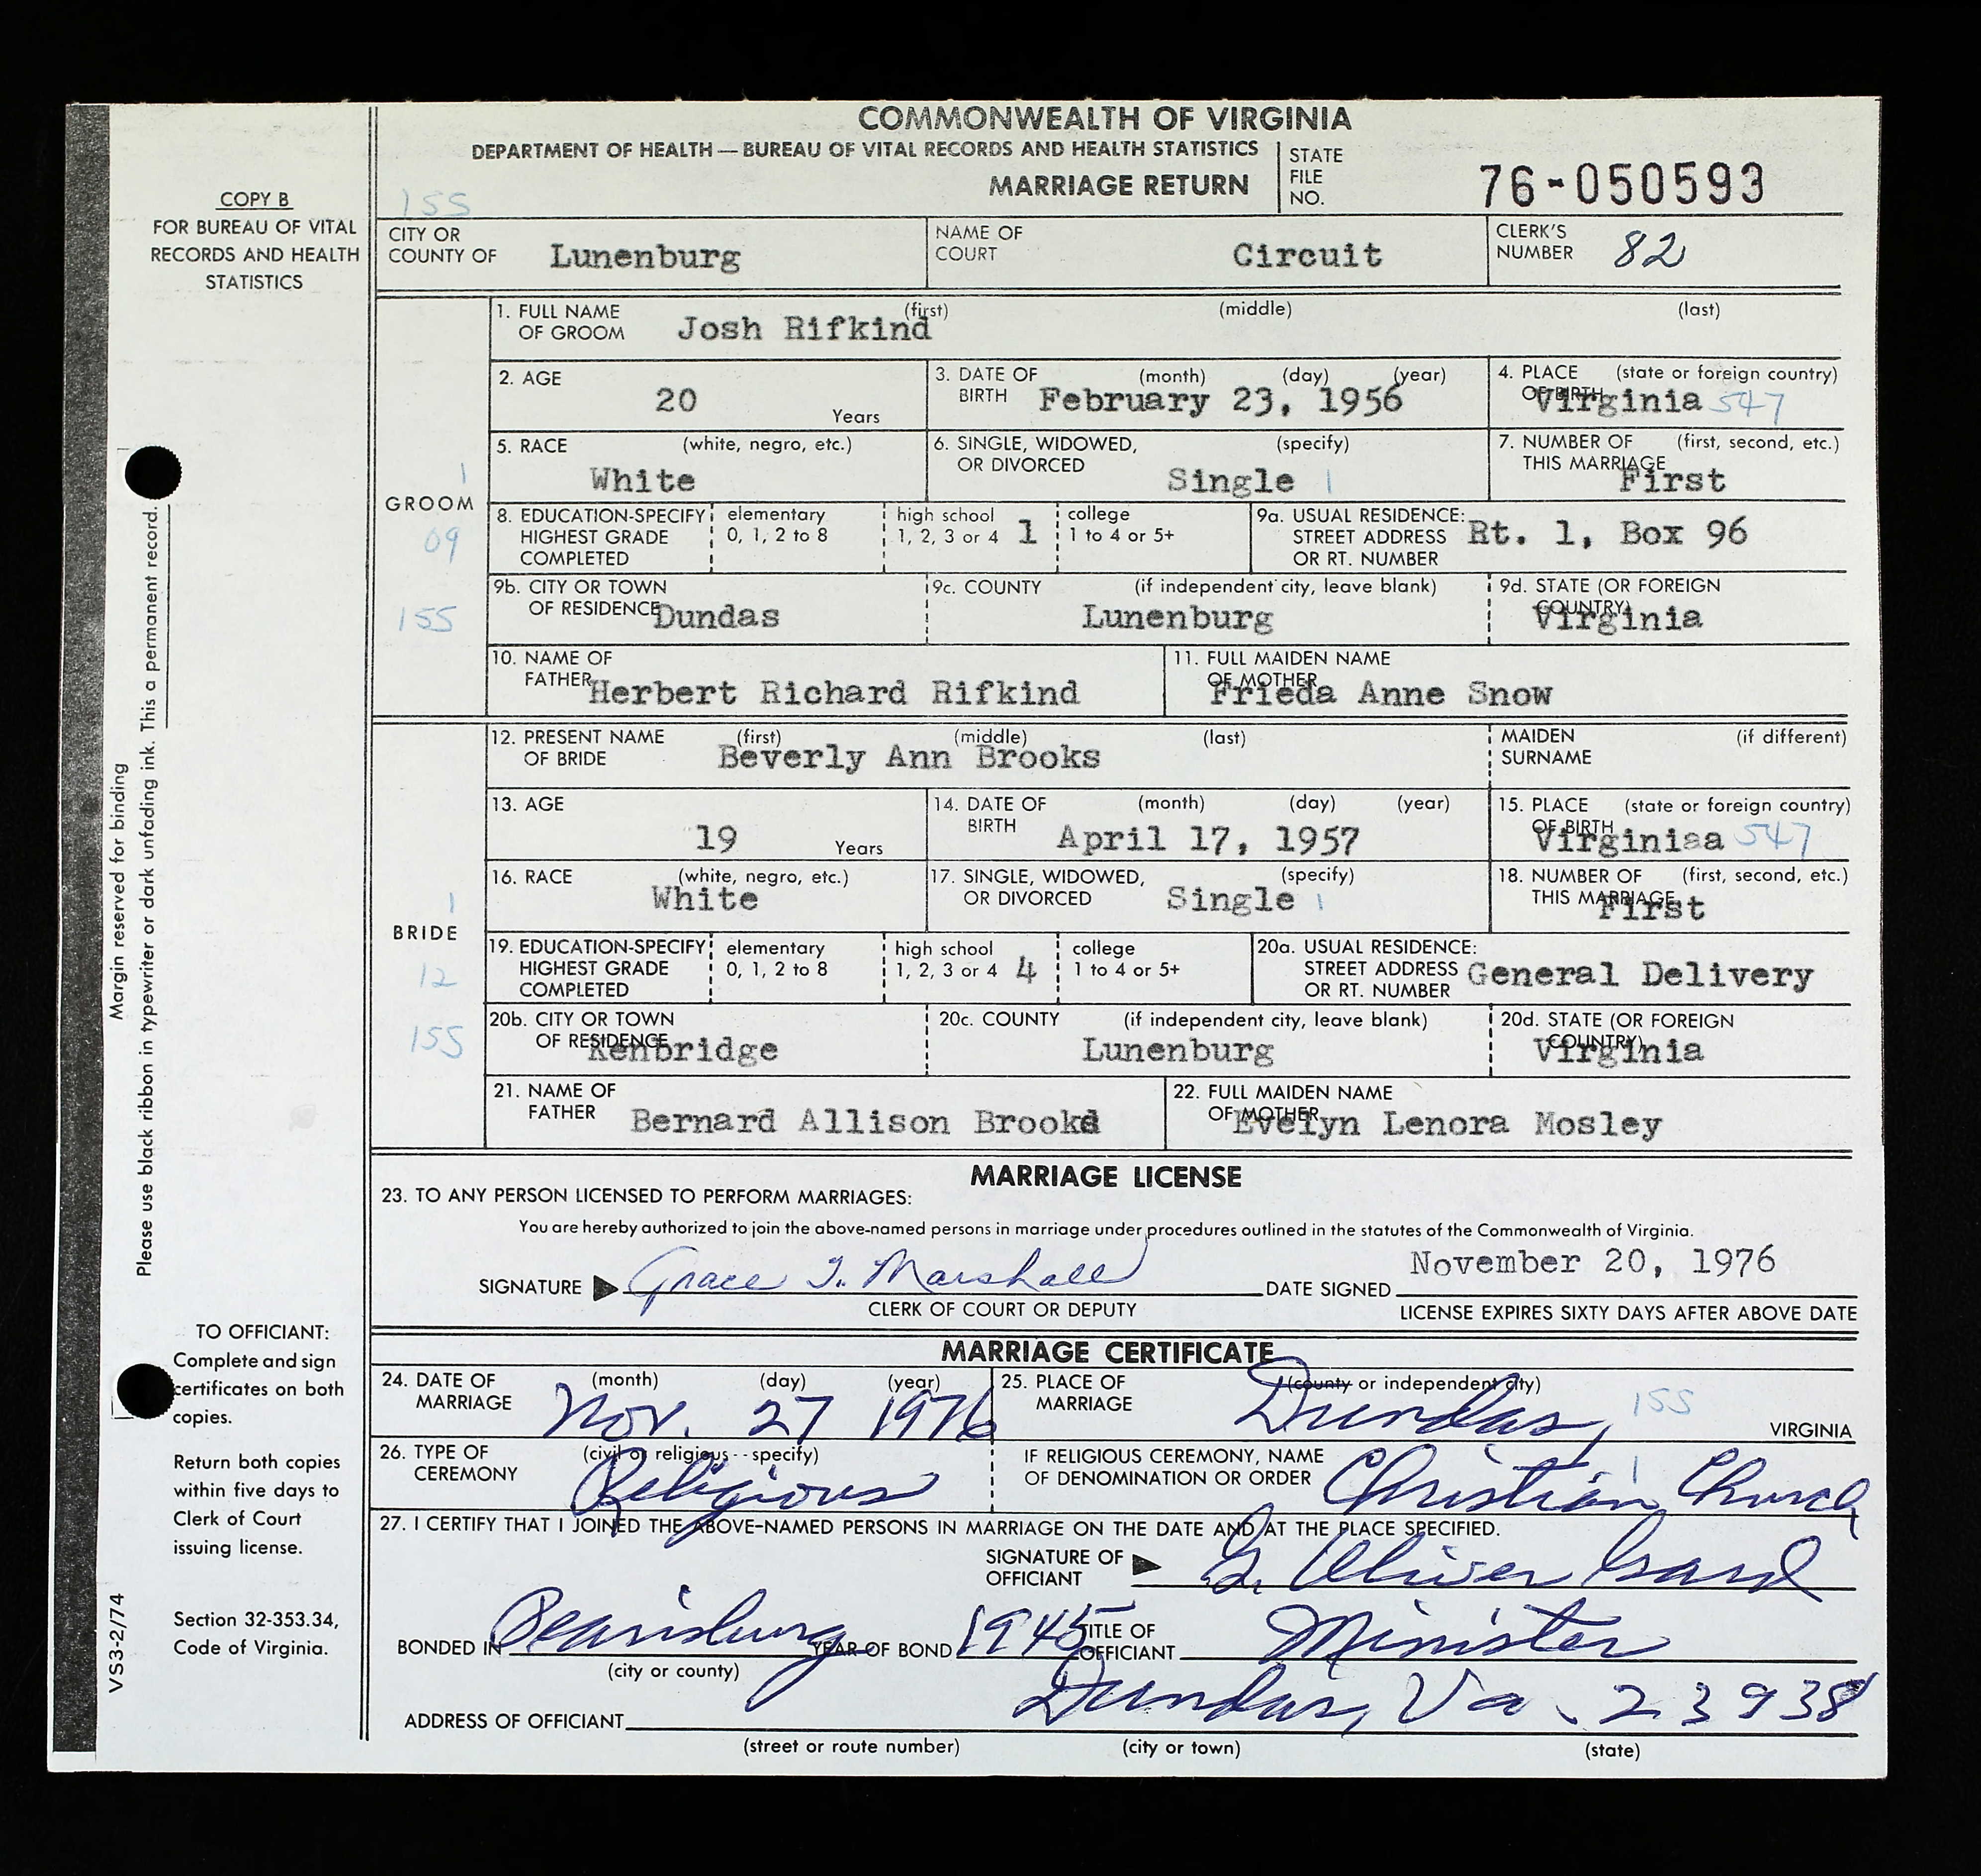 COMMONWEALTH OF VIRGINIA
DEPARTMENT OF HEALTH — BUREAU OF VITAL RECORDS AND HEALTH STATISTICS
MARRIAGE RETURN
STATE FILE NO. 76-050593
COPY B
FOR BUREAU OF VITAL
RECORDS AND HEALTH
STATISTICS
155
CITY OR COUNTY OF Lunenburg NAME OF COURT Circuit CLERK'S NUMBER 82
GROOM
1
09
155
1. FULL NAME OF GROOM (first) (middle) (last) Josh Rifkind
2. AGE 20 Years 3. DATE OF BIRTH (month) (day) (year) February 23, 1956 4. PLACE OF BIRTH (state or foreign country) Virginia 547
5. RACE (white, negro, etc.) White 6. SINGLE, WIDOWED, OR DIVORCED (specify) Single 1 7. NUMBER OF THIS MARRIAGE (first, second, etc.) First
8. EDUCATION-SPECIFY HIGHEST GRADE COMPLETED elementary 0, 1, 2 to 8 high school 1, 2, 3 or 4 1 college 1 to 4 or 5+ 9a. USUAL RESIDENCE: STREET ADDRESS OR RT. NUMBER Rt. 1, Box 96
9b. CITY OR TOWN OF RESIDENCE Dundas 9c. COUNTY (if independent city, leave blank) Lunenburg 9d. STATE (OR FOREIGN COUNTRY) Virginia
10. NAME OF FATHER Herbert Richard Rifkind 11. FULL MAIDEN NAME OF MOTHER Frieda Anne Snow
BRIDE
1
12
155
12. PRESENT NAME OF BRIDE (first) (middle) (last) Beverly Ann Brooks MAIDEN SURNAME (if different)
13. AGE 19 Years 14. DATE OF BIRTH (month) (day) (year) April 17, 1957 15. PLACE OF BIRTH (state or foreign country) Virginiaa 547
16. RACE (white, negro, etc.) White 17. SINGLE, WIDOWED, OR DIVORCED (specify) Single 1 18. NUMBER OF THIS MARRIAGE (first, second, etc.) First
19. EDUCATION-SPECIFY HIGHEST GRADE COMPLETED elementary 0, 1, 2 to 8 high school 1, 2, 3 or 4 4 college 1 to 4 or 5+ 20a. USUAL RESIDENCE: STREET ADDRESS OR RT. NUMBER General Delivery
20b. CITY OR TOWN OF RESIDENCE Kenbridge 20c. COUNTY (if independent city, leave blank) Lunenburg 20d. STATE (OR FOREIGN COUNTRY) Virginia
21. NAME OF FATHER Bernard Allison 22. FULL MAIDEN NAME OF MOTHER Evelyn Lenora Mosley
MARRIAGE LICENSE
23. TO ANY PERSON LICENSED TO PERFORM MARRIAGES:
You are hereby authorized to join the above-named persons in marriage under procedures outlined in the statutes of the Commonwealth of Virginia.
SIGNATURE Grace T. Marshall DATE SIGNED November 20, 1976
CLERK OF COURT OR DEPUTY LICENSE EXPIRES SIXTY DAYS AFTER ABOVE DATE
MARRIAGE CERTIFICATE
24. DATE OF MARRIAGE (month) (day) (year) Nov. 27 1976 25. PLACE OF MARRIAGE (county or independent city) Dundas, 155 VIRGINIA
26. TYPE OF CEREMONY (civil or religious - - specify) Religious IF RELIGIOUS CEREMONY, NAME OF DENOMINATION OR ORDER Christian Church 1
27. I CERTIFY THAT I JOINED THE ABOVE-NAMED PERSONS IN MARRIAGE ON THE DATE AND AT THE PLACE SPECIFIED.
SIGNATURE OF OFFICIANT G. Oliver
BONDED IN Pearisburg YEAR OF BOND 1945 TITLE OF OFFICIANT Minister
(city or county)
ADDRESS OF OFFICIANT Dundas, Va. 23938
(street or route number) (city or town) (state)
Margin reserved for binding
Please use black ribbon in typewriter or dark unfading ink. This a permanent record.
TO OFFICIANT:
Complete and sign
certificates on both
copies.
Return both copies
within five days to
Clerk of Court
issuing license.
Section 32-353.34,
Code of Virginia.
VS3-2/74